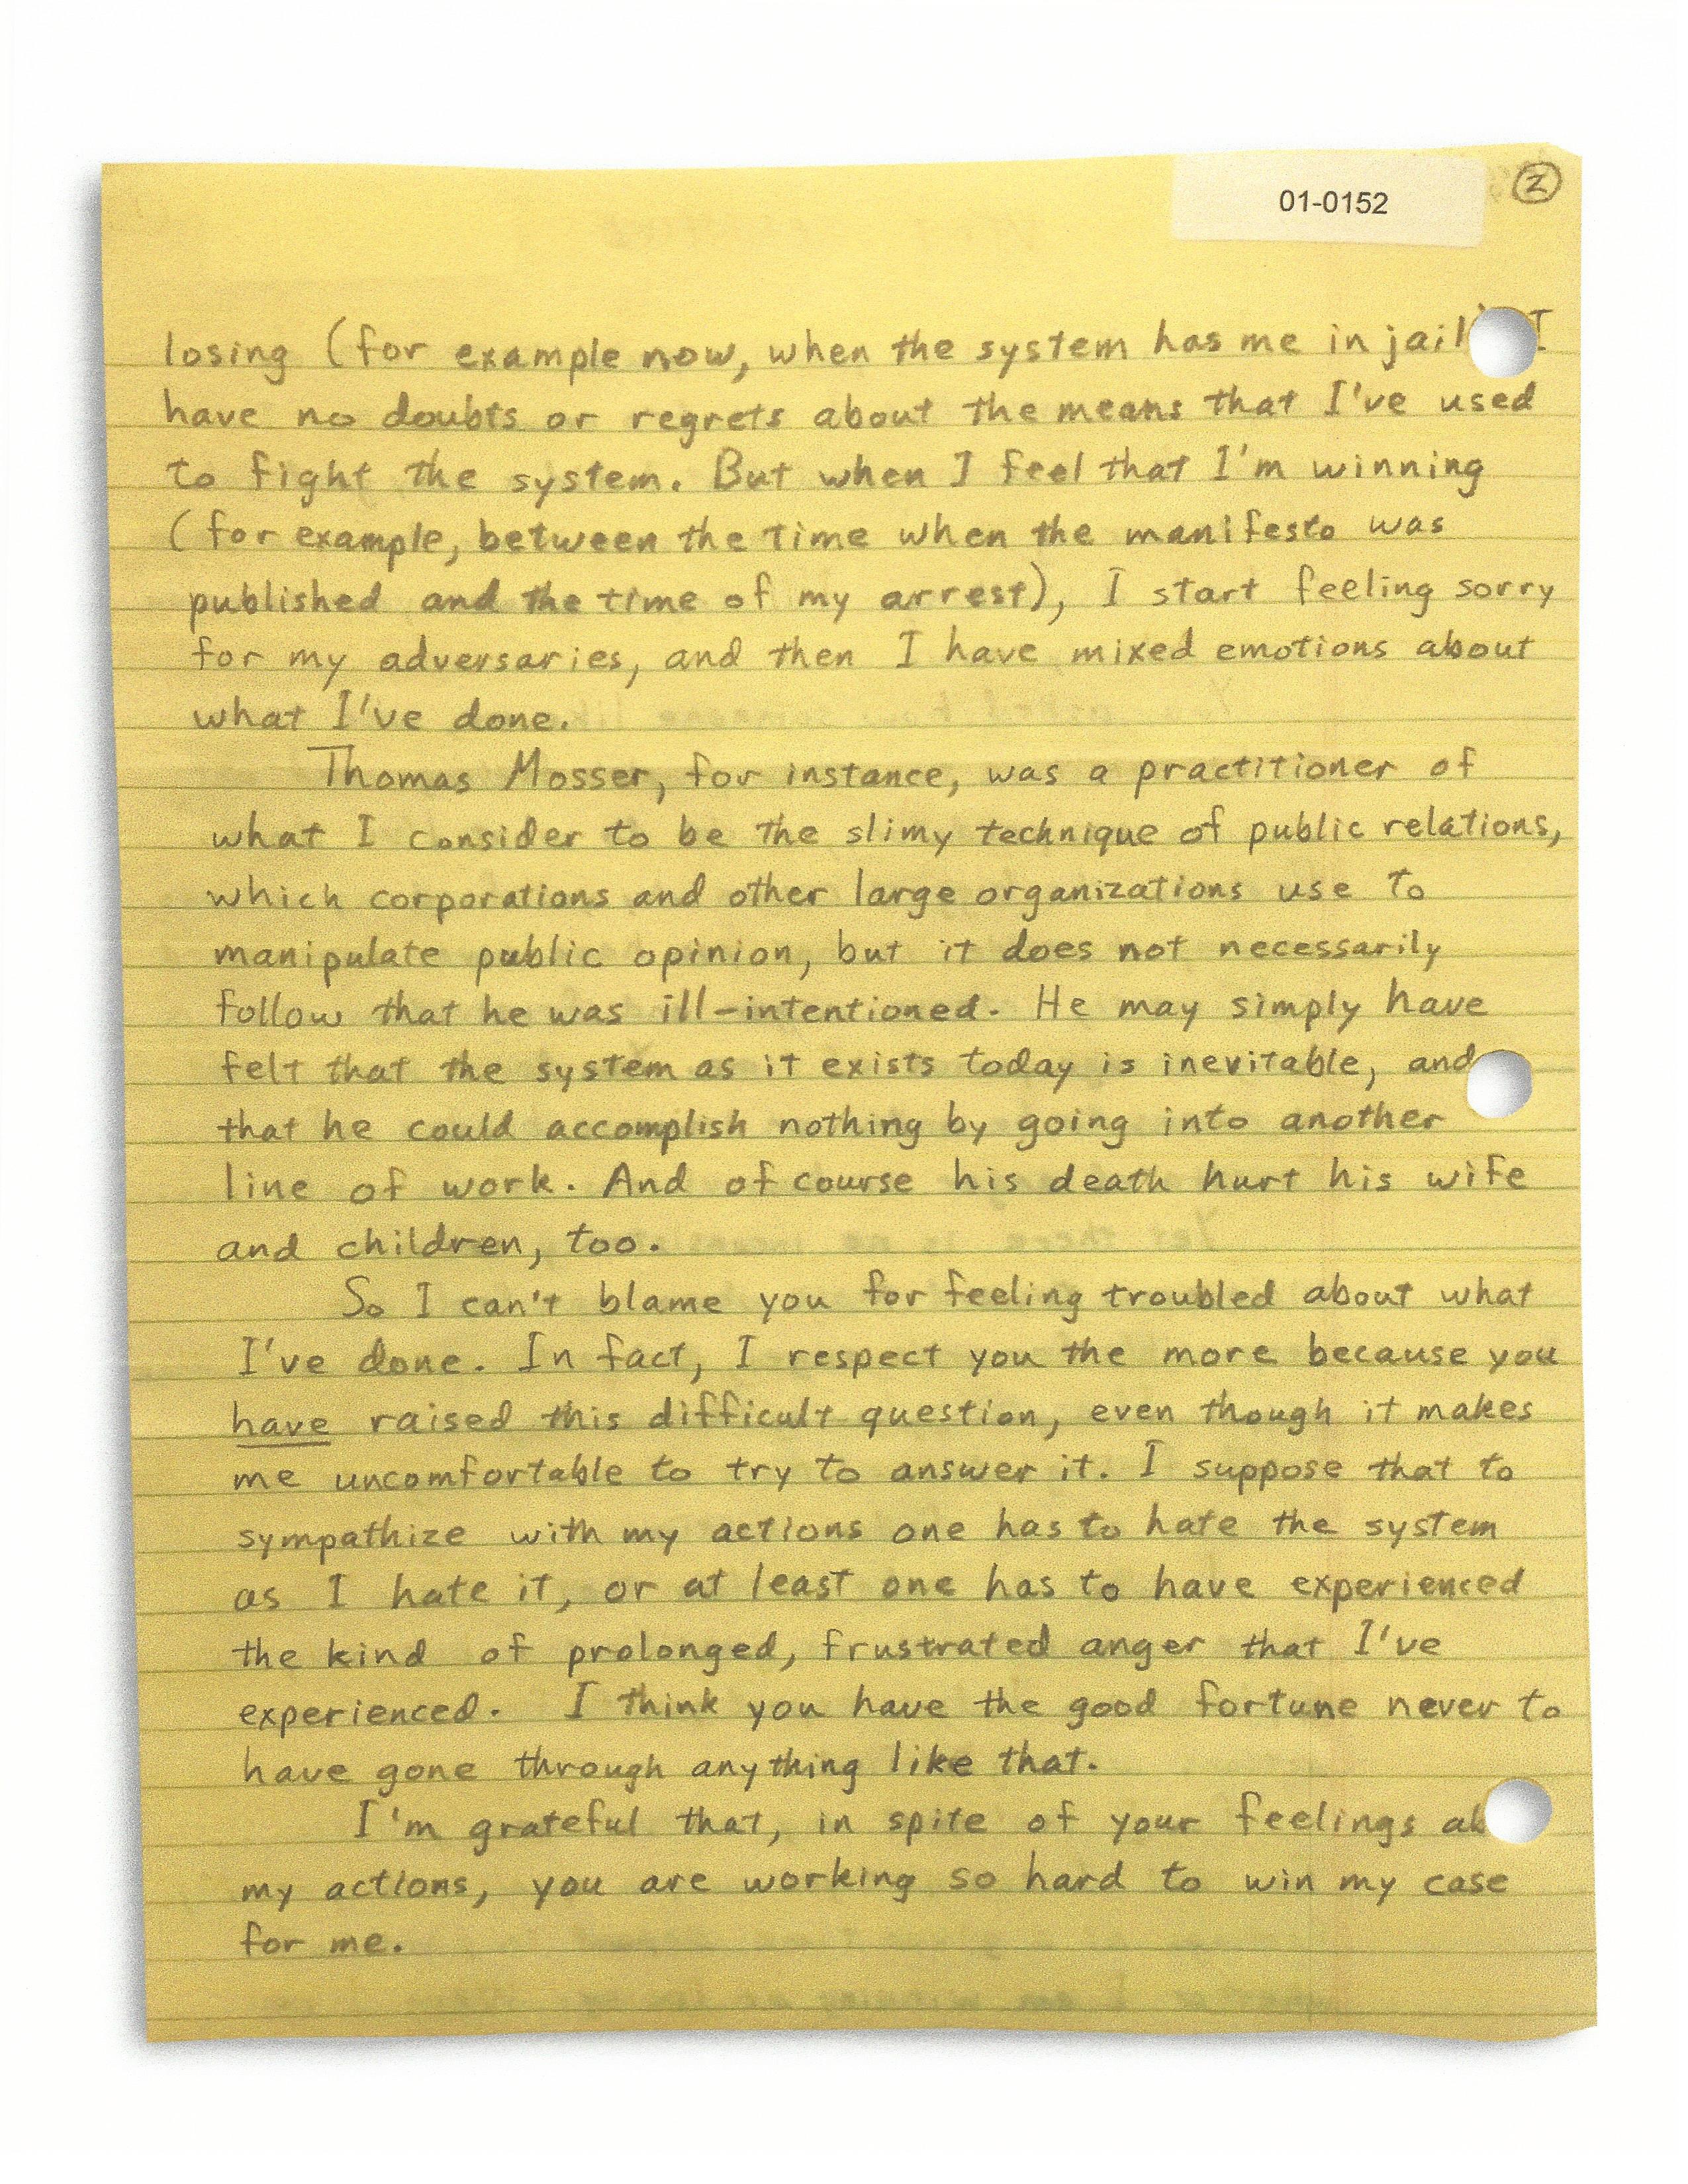 01-0152
2
losing (for example now, when the system has me in jail) I
have no doubts or regrets about the means that I've used
to fight the system. But when I feel that I'm winning
(for example, between the time when the manifesto was
published and the time of my arrest), I start feeling sorry
for my adversaries, and then I have mixed emotions about
what I've done.
Thomas Mosser, for instance, was a practitioner of
what I consider to be the slimy technique of public relations,
which corporations and other large organizations use to
manipulate public opinion, but it does not necessarily
follow that he was ill-intentioned. He may simply have
felt that the system as it exists today is inevitable, and
that he could accomplish nothing by going into another
line of work. And of course his death hurt his wife
and children, too.
So I can't blame you for feeling troubled about what
I've done. In fact, I respect you the more because you
have raised this difficult question, even though it makes
me uncomfortable to try to answer it. I suppose that to
sympathize with my actions one has to hate the system
as I hate it, or at least one has to have experienced
the kind of prolonged, frustrated anger that I've
experienced. I think you have the good fortune never to
have gone through anything like that.
I'm grateful that, in spite of your feelings ab
my actions, you are working so hard to win my case
for me.